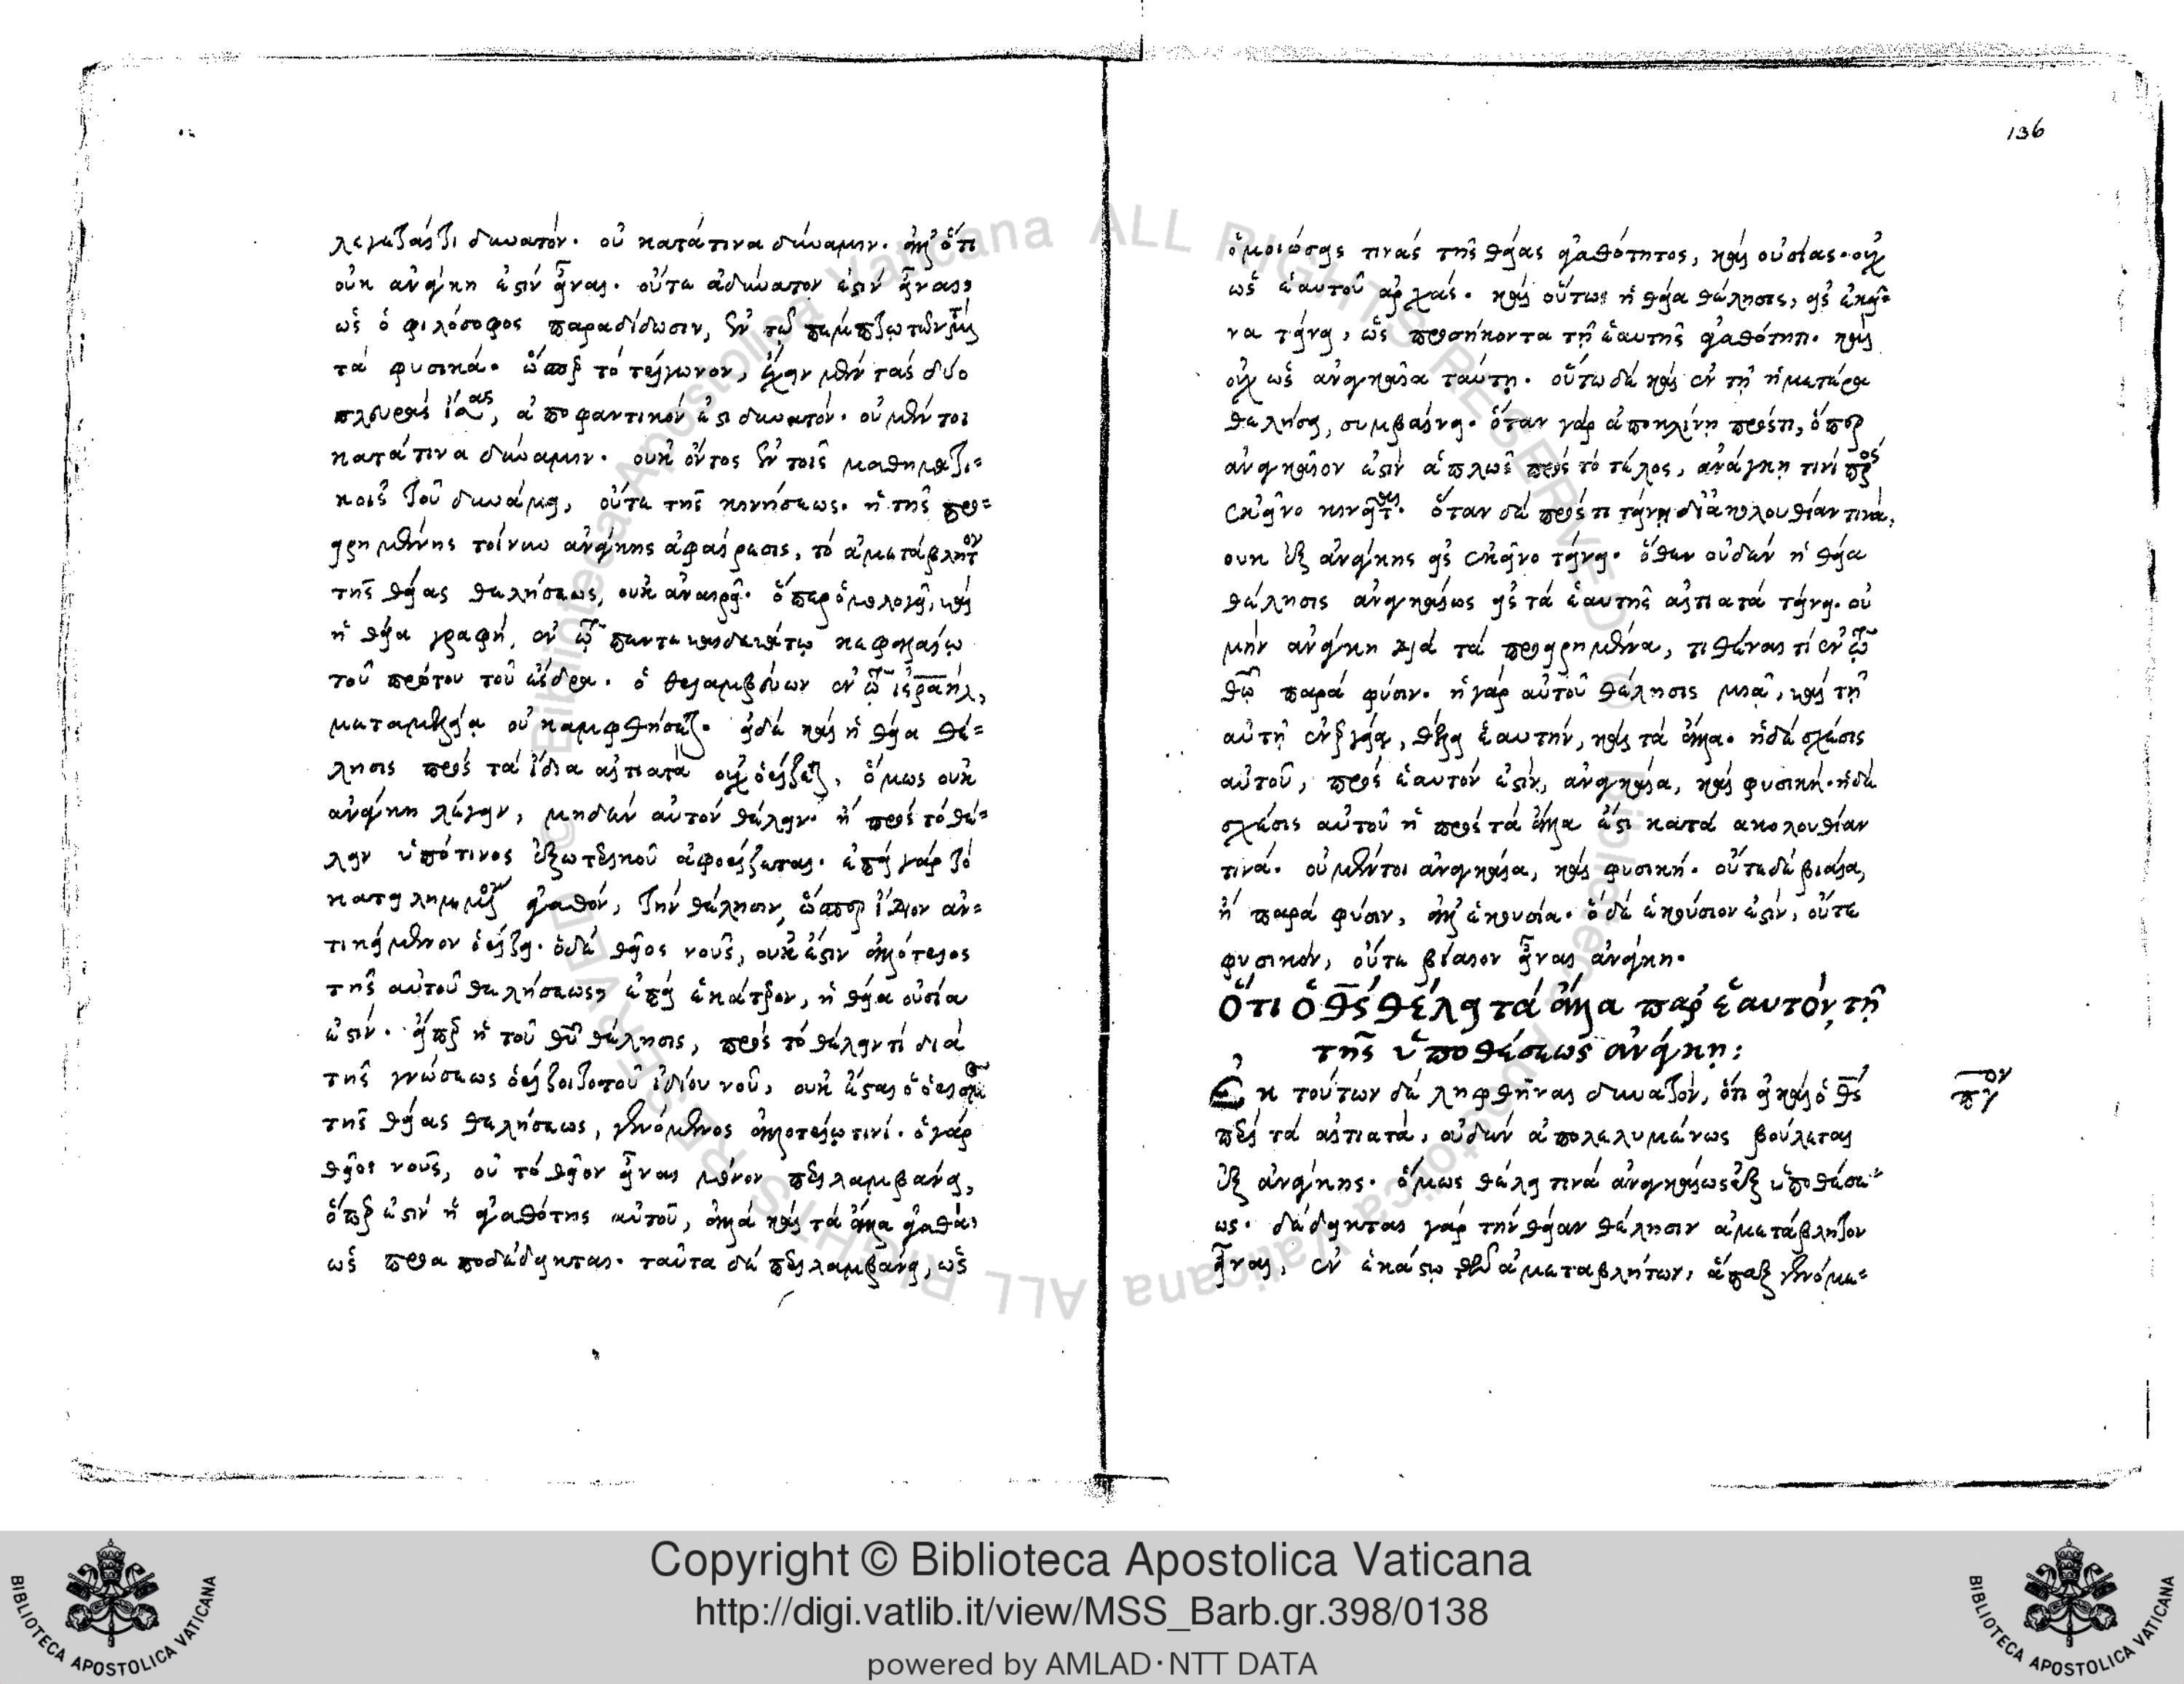 λέγεταί τι δυνατόν. οὐ κατά τινα δύναμιν. ἀλλ' ὅτι
οὐκ ἀνάγκη ἐστὶν εἶναι. οὔτε ἀδύνατον ἐστὶν εἶναι,
ὡς ὁ φιλόσοφος παραδίδωσιν, ἐν τῷ πέμπτῳ τῶν μετὰ
τὰ φυσικά. ὥσπερ τὸ τρίγωνον, ἔχειν μὲν τὰς δύο
πλευρὰς ἴσας, ἀποφαντικόν ἐστι δυνατόν. οὐ μέντοι
κατά τινα δύναμιν. οὐκ ὄντος ἐν τοῖς μαθηματι=
κοῖς τοῦ δυνάμει, οὔτε τῆς κινήσεως. ἡ τῆς προ=
ειρημένης τοίνυν ἀνάγκης ἀφαίρεσις, τὸ ἀμετάβλητον
τῆς θείας θελήσεως, οὐκ ἀναιρεῖ. ὅπερ ὁμολογεῖ, καὶ
ἡ θεία γραφή, ἐν τῷ πεντεκαιδεκάτῳ κεφαλαίῳ
τοῦ πρώτου τοῦ ἔσδρα. ὁ θριαμβεύων ἐν τῷ ἰσραήλ,
μεταμελείᾳ οὐ καμφθήσεται. εἰ δὲ καὶ ἡ θεία θέ=
λησις πρὸς τὰ ἴδια αἰτιατὰ οὐχ ὁρίζεται, ὅμως οὐκ
ἀνάγκη λέγειν, μηδὲν αὐτὸν θέλειν. ἢ πρὸς τὸ θέ=
λειν ὑπό τινος ἐξωτερικοῦ ἀφορίζεται. ἐπεὶ γὰρ τὸ
κατειλημμένον ἀγαθόν, τὴν θέλησιν, ὥσπερ ἴδιον ἀν=
τικείμενον ὁρίζει. ὁ δὲ θεῖος νοῦς, οὐκ ἔστιν ἀλλότριος
τῆς αὐτοῦ θελήσεως, ἐπεὶ ἑκάτερον, ἡ θεία οὐσία
ἐστίν. εἴπερ ἡ τοῦ θεοῦ θέλησις, πρὸς τὸ θέλειν τι διὰ
τῆς γνώσεως ὁρίζοιτο τοῦ ἰδίου νοῦ, οὐκ ἔσται ὁ ὁρισμὸς
τῆς θείας θελήσεως, γενόμενος ἀλλοτρίῳ τινί. ὁ γὰρ
θεῖος νοῦς, οὐ τὸ θεῖον εἶναι μόνον περιλαμβάνει,
ὅπερ ἐστὶν ἡ ἀγαθότης αὐτοῦ, ἀλλὰ καὶ τὰ ἄλλα ἀγαθά,
ὡς προαποδέδεικται. ταῦτα δὲ περιλαμβάνει, ὡς
136
ὁμοιώσεις τινὰς τῆς θείας ἀγαθότητος, καὶ οὐσίας. οὐχ
ὡς ἑαυτοῦ ἀρχάς. καὶ οὕτως ἡ θεία θέλησις, εἰς ἐκεῖ=
να τείνει, ὡς προσήκοντα τῇ ἑαυτῆς ἀγαθότητι. καὶ
οὐχ ὡς ἀναγκαῖα ταύτῃ. οὕτω δὲ καὶ ἐν τῇ ἡμετέρᾳ
θελήσει, συμβαίνει. ὅταν γὰρ ἀποκλίνῃ πρός τι, ὅπερ
ἀναγκαῖον ἐστὶν ἁπλῶς πρὸς τὸ τέλος, ἀνάγκῃ τινὶ πρὸς
ἐκεῖνο κινεῖται. ὅταν δὲ πρός τι τείνῃ δι' ἀκολουθίαν τινά,
οὐκ ἐξ ἀνάγκης εἰς ἐκεῖνο τείνει. ὅθεν οὐδὲν ἡ θεία
θέλησις ἀναγκαίως εἰς τὰ ἑαυτῆς αἰτιατὰ τείνει. οὐ
μὴν ἀνάγκη διὰ τὰ προειρημένα, τιθέναι τι ἐν τῷ
θεῷ παρὰ φύσιν. ἡ γὰρ αὐτοῦ θέλησις μιᾷ, καὶ τῇ
αὐτῇ ἐνεργείᾳ, θέλει ἑαυτήν, καὶ τὰ ἄλλα. ἡ δὲ σχέσις
αὐτοῦ, πρὸς ἑαυτόν ἐστιν, ἀναγκαία, καὶ φυσική. ἡ δὲ
σχέσις αὐτοῦ ἡ πρὸς τὰ ἄλλα ἐστι κατὰ ἀκολουθίαν
τινά. οὐ μέντοι ἀναγκαία, καὶ φυσική. οὔτε δὲ βιαία,
ἢ παρὰ φύσιν, ἀλλ' ἑκουσία. ὃ δὲ ἑκούσιον ἐστίν, οὔτε
φυσικόν, οὔτε βίαιον εἶναι ἀνάγκη.
Ὅτι ὁ θς θέλει τὰ ἄλλα παρ' ἑαυτόν, τῇ
τῆς ὑποθέσεως ἀνάγκῃ:
Ἐκ τούτων δὲ ληφθῆναι δυνατόν, ὅτι εἰ καὶ ὁ θς
περὶ τὰ αἰτιατά, οὐδὲν ἀπολελυμένως βούλεται
ἐξ ἀνάγκης. ὅμως θέλει τινὰ ἀναγκαίως ἐξ ὑποθέσε=
ως. δέδεικται γὰρ τὴν θείαν θέλησιν ἀμετάβλητον
εἶναι, ἐν ἑκάστῳ τῶν ἀμεταβλήτων, ἅπαξ γενόμε=
πγον
Copyright © Biblioteca Apostolica Vaticana
http://digi.vatlib.it/view/MSS_Barb.gr.398/0138
powered by AMLAD·NTT DATA